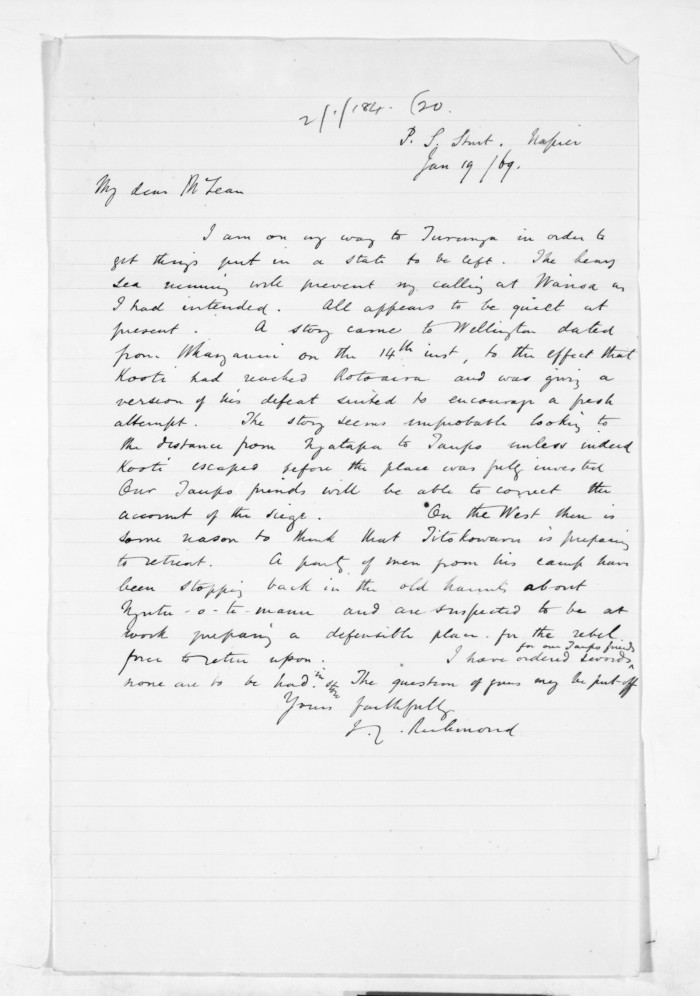 2/1/184. (20.
P. S. Sturt. Napier
Jan 19/69.
My dear McLean
I am on my way to Turanga in order to
get things put in a state to be left. The heavy
sea running will prevent my calling at Wairoa as
I had intended. All appears to be quiet at
present. A story came to Wellington dated
from Whanganui on the 14th inst, to the effect that
Kooti had reached Rotoaira and was giving a
version of his defeat suited to encourage a fresh
attempt. The story seems improbable looking to
the distance from Ngatapa to Taupo unless indeed
Kooti escaped before the place was fully invested
Our Taupo friends will be able to correct the
account of the siege. On the West there is
some reason to think that Titokowaru is preparing
to retreat. A party of men from his camp have
been stopping back in the old haunts about
Ngutu-o-te-manu and are suspected to be at
work preparing a defensible place for the rebel
force to retire upon. I have ordered swords for our Taupo friends
none are to be had in store. The question of guns may be put off
Yours faithfully
J. C. Richmond